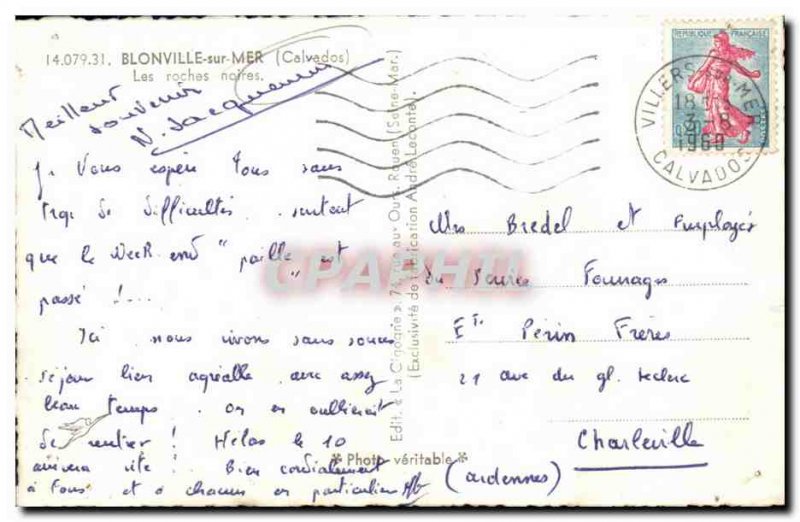 14.079.31. BLONVILLE-sur-MER (Calvados)
Les roches noires.
Meilleur
souvenir
N. Jacquemin
Je Vous espère Tous sans
trop de difficultés surtout
que le Week end "paille" est
passé !...
Ici nous vivons sans soucis
séjour bien agréable avec assez
beau temps. on en oublierait
de rentrer ! Hélas le 10
arrivera vite ! Bien cordialement
à Tous et à chacun en particulier
Edit. « La Cigogne », 74, rue aux Ours, Rouen (Seine-Mar.)
(Exclusivité de fabrication André Leconte).
* Photo véritable *
CPAPHIL
REPUBLIQUE FRANÇAISE
VILLERS-sur-MER
18H
3-8
1960
CALVADOS
Mrs Bredel et Employés
du Fourrages
Ets Périn Frères
21 ave du gl. Leclerc
Charleville
(ardennes)